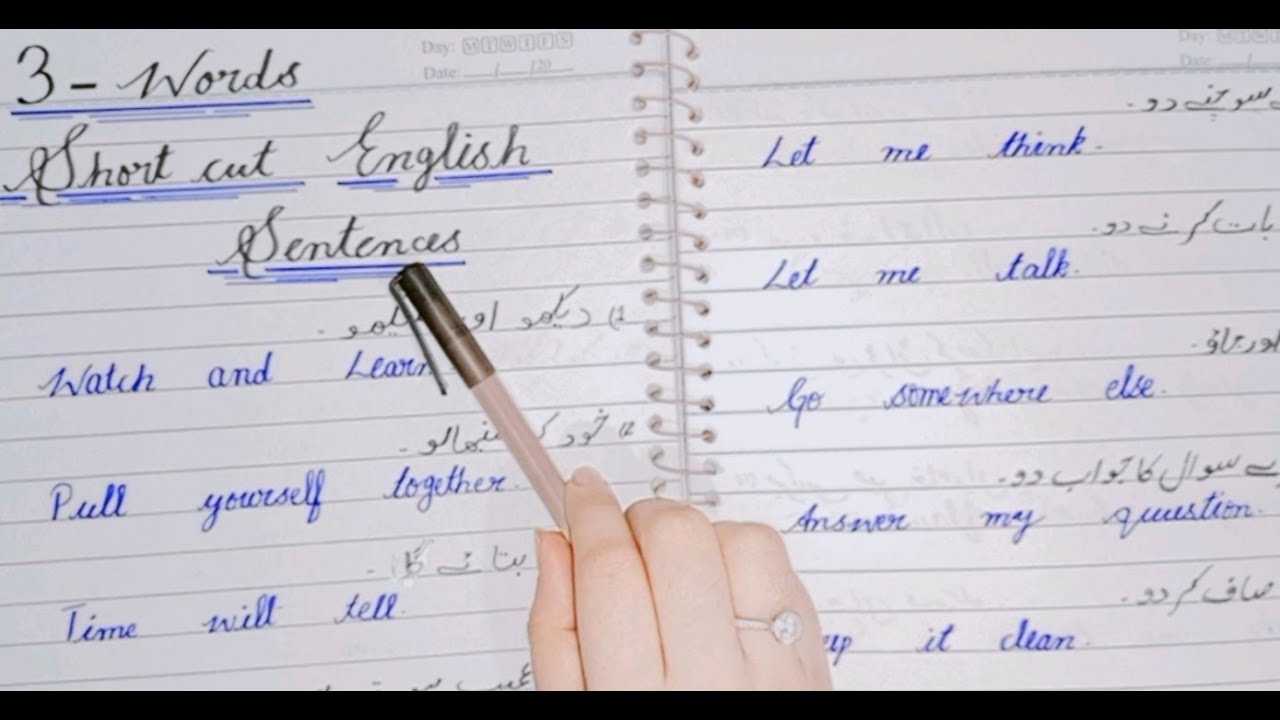 3 - Words
Short cut English
Sentences
1) دیکھو اور
Watch and Learn
2) خود سنبھالو۔
Pull yourself together.
بتائے گا۔
Time will tell.
Day: M T W T F S S
Date: __/__/20__
Day:
Date:
سوچنے دو۔
Let me think.
بات کرنے دو۔
Let me talk.
اور جاؤ۔
Go somewhere else.
سوال کا جواب دو۔
Answer my question.
صاف کر دو۔
it clean.